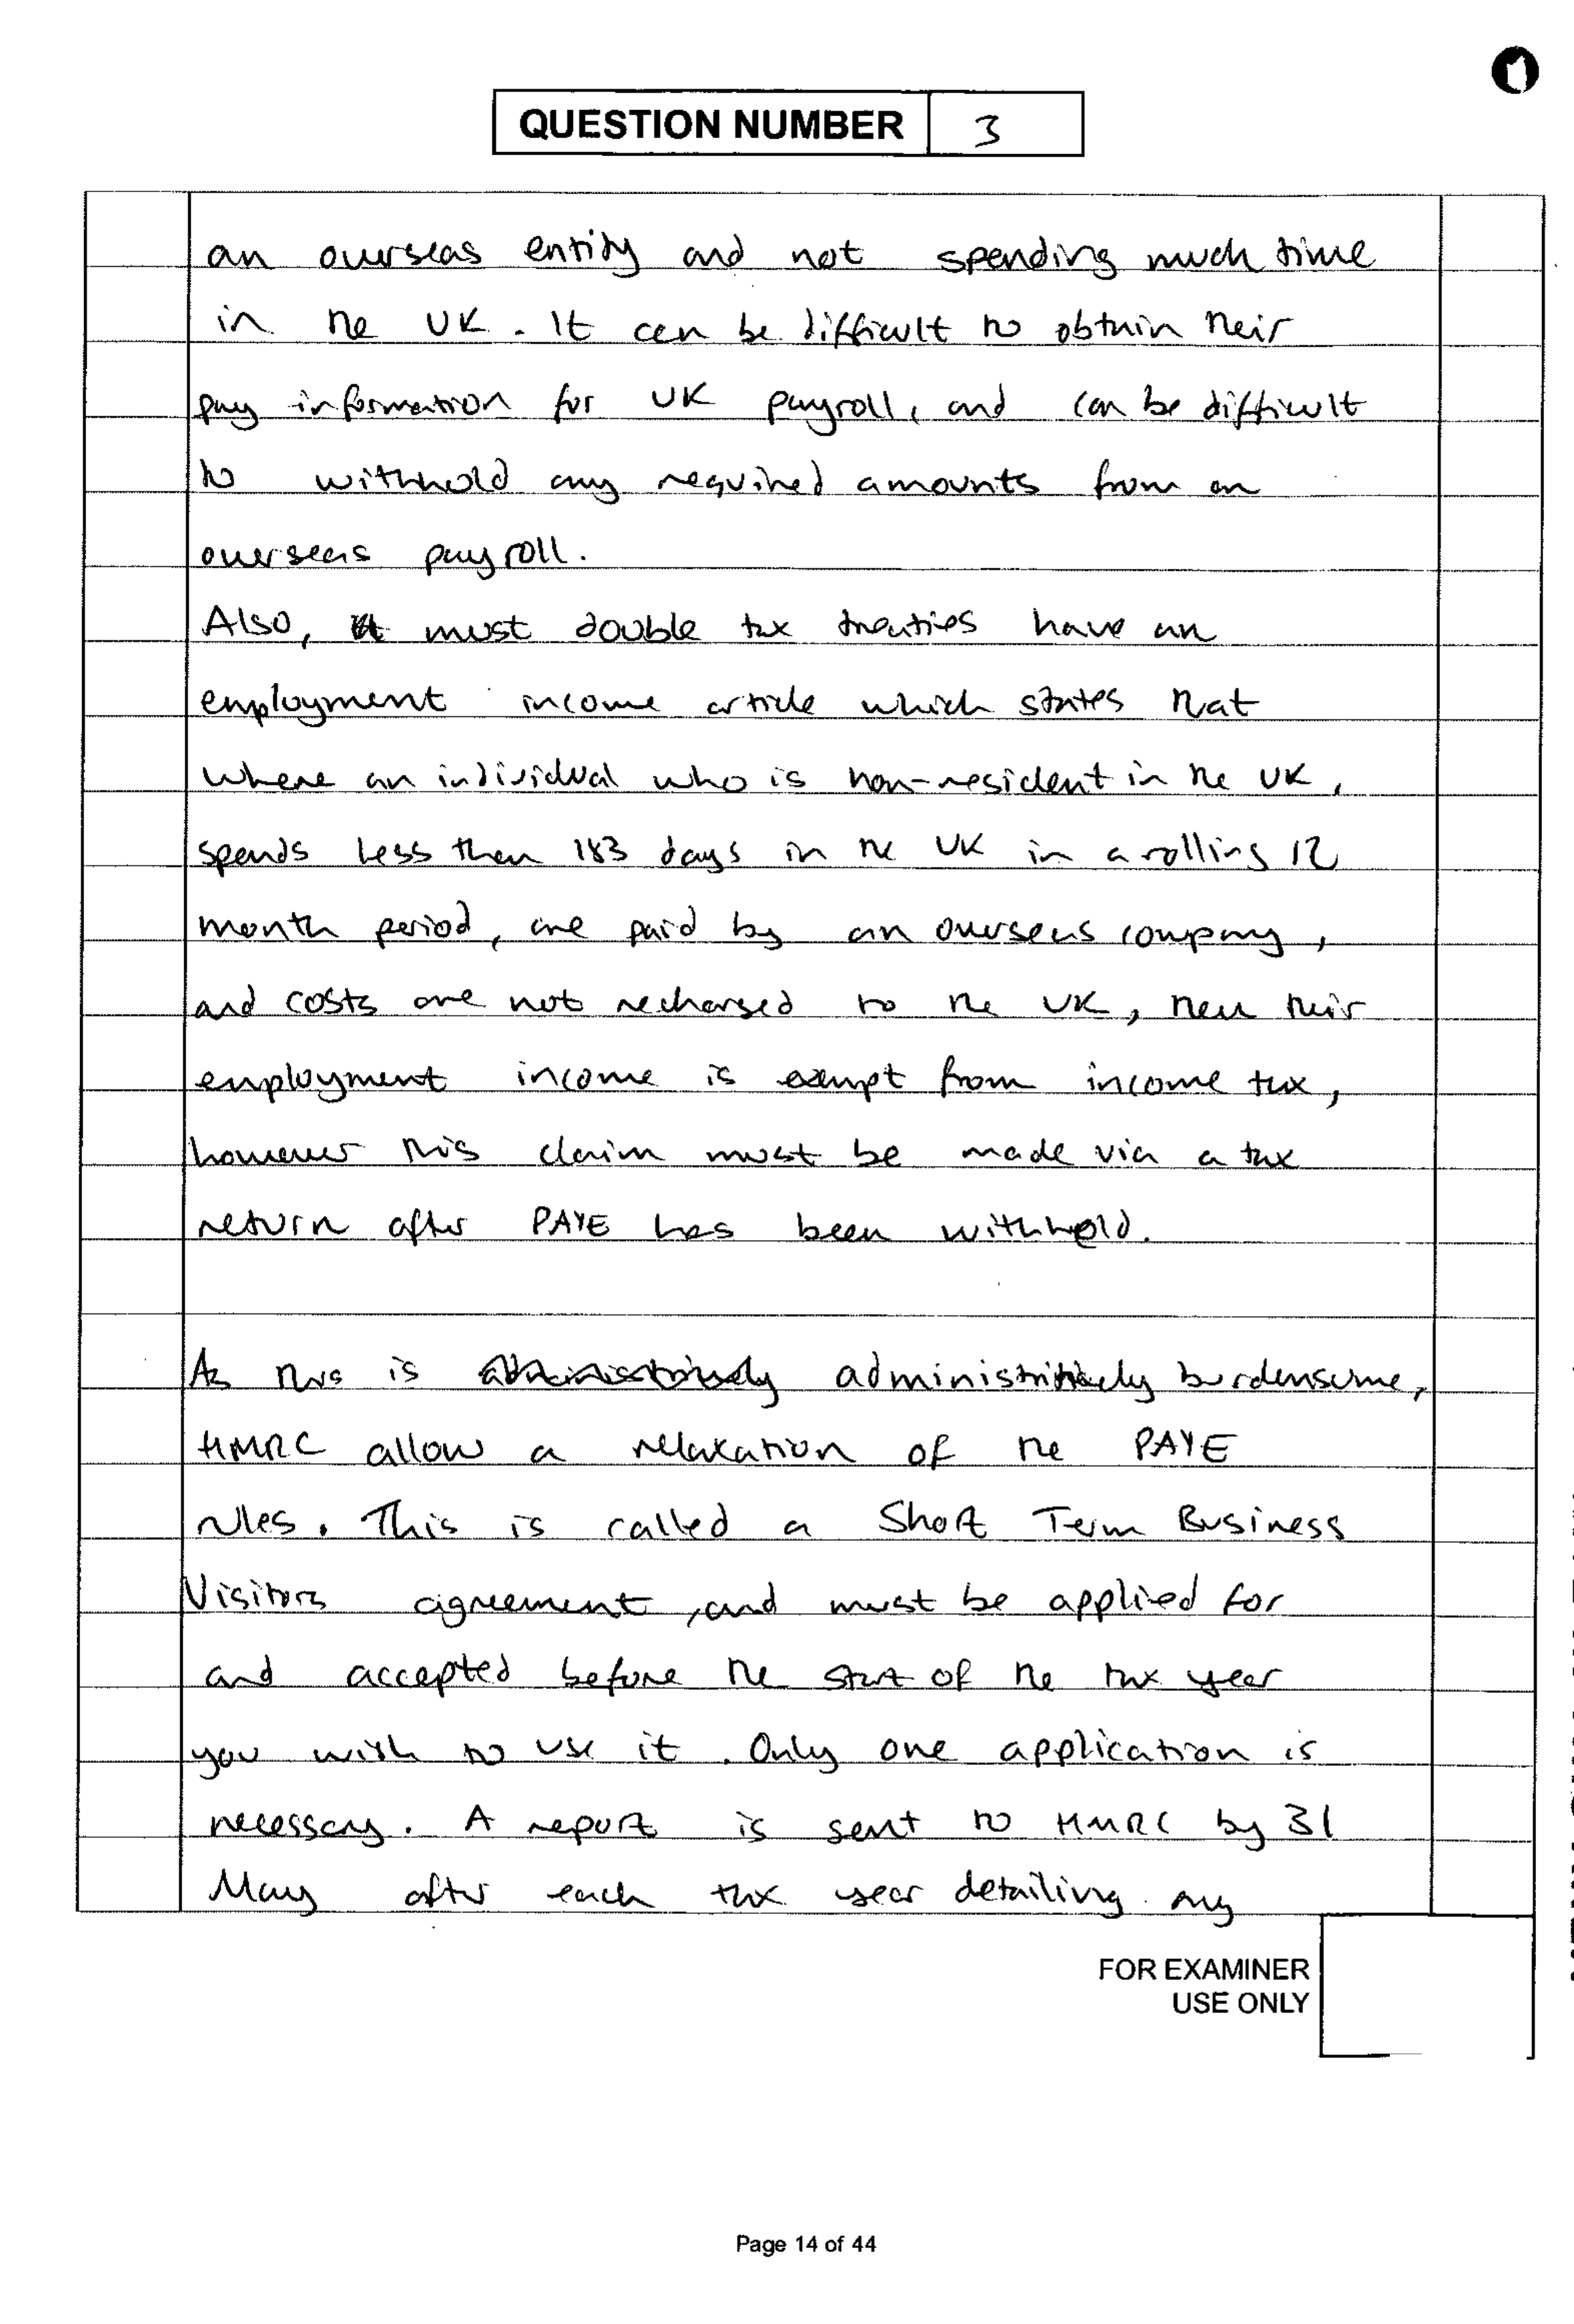 QUESTION NUMBER 3
an overseas entity and not spending much time
in the UK. It can be difficult to obtain their
pay information for UK payroll, and can be difficult
to withhold any required amounts from an
overseas payroll.
Also, must double tax treaties have an
employment income article which states that
where an individual who is non-resident in the UK,
spends less than 183 days in the UK in a rolling 12
month period, are paid by an overseas company,
and costs are not recharged to the UK, then their
employment income is exempt from income tax,
however this claim must be made via a tax
return after PAYE has been withheld.
As this is administritively burdensome,
HMRC allow a relaxation of the PAYE
rules. This is called a Short Term Business
Visitors agreement, and must be applied for
and accepted before the start of the tax year
you wish to use it. Only one application is
necessary. A report is sent to HMRC by 31
May after each tax year detailing any
FOR EXAMINER
USE ONLY
Page 14 of 44